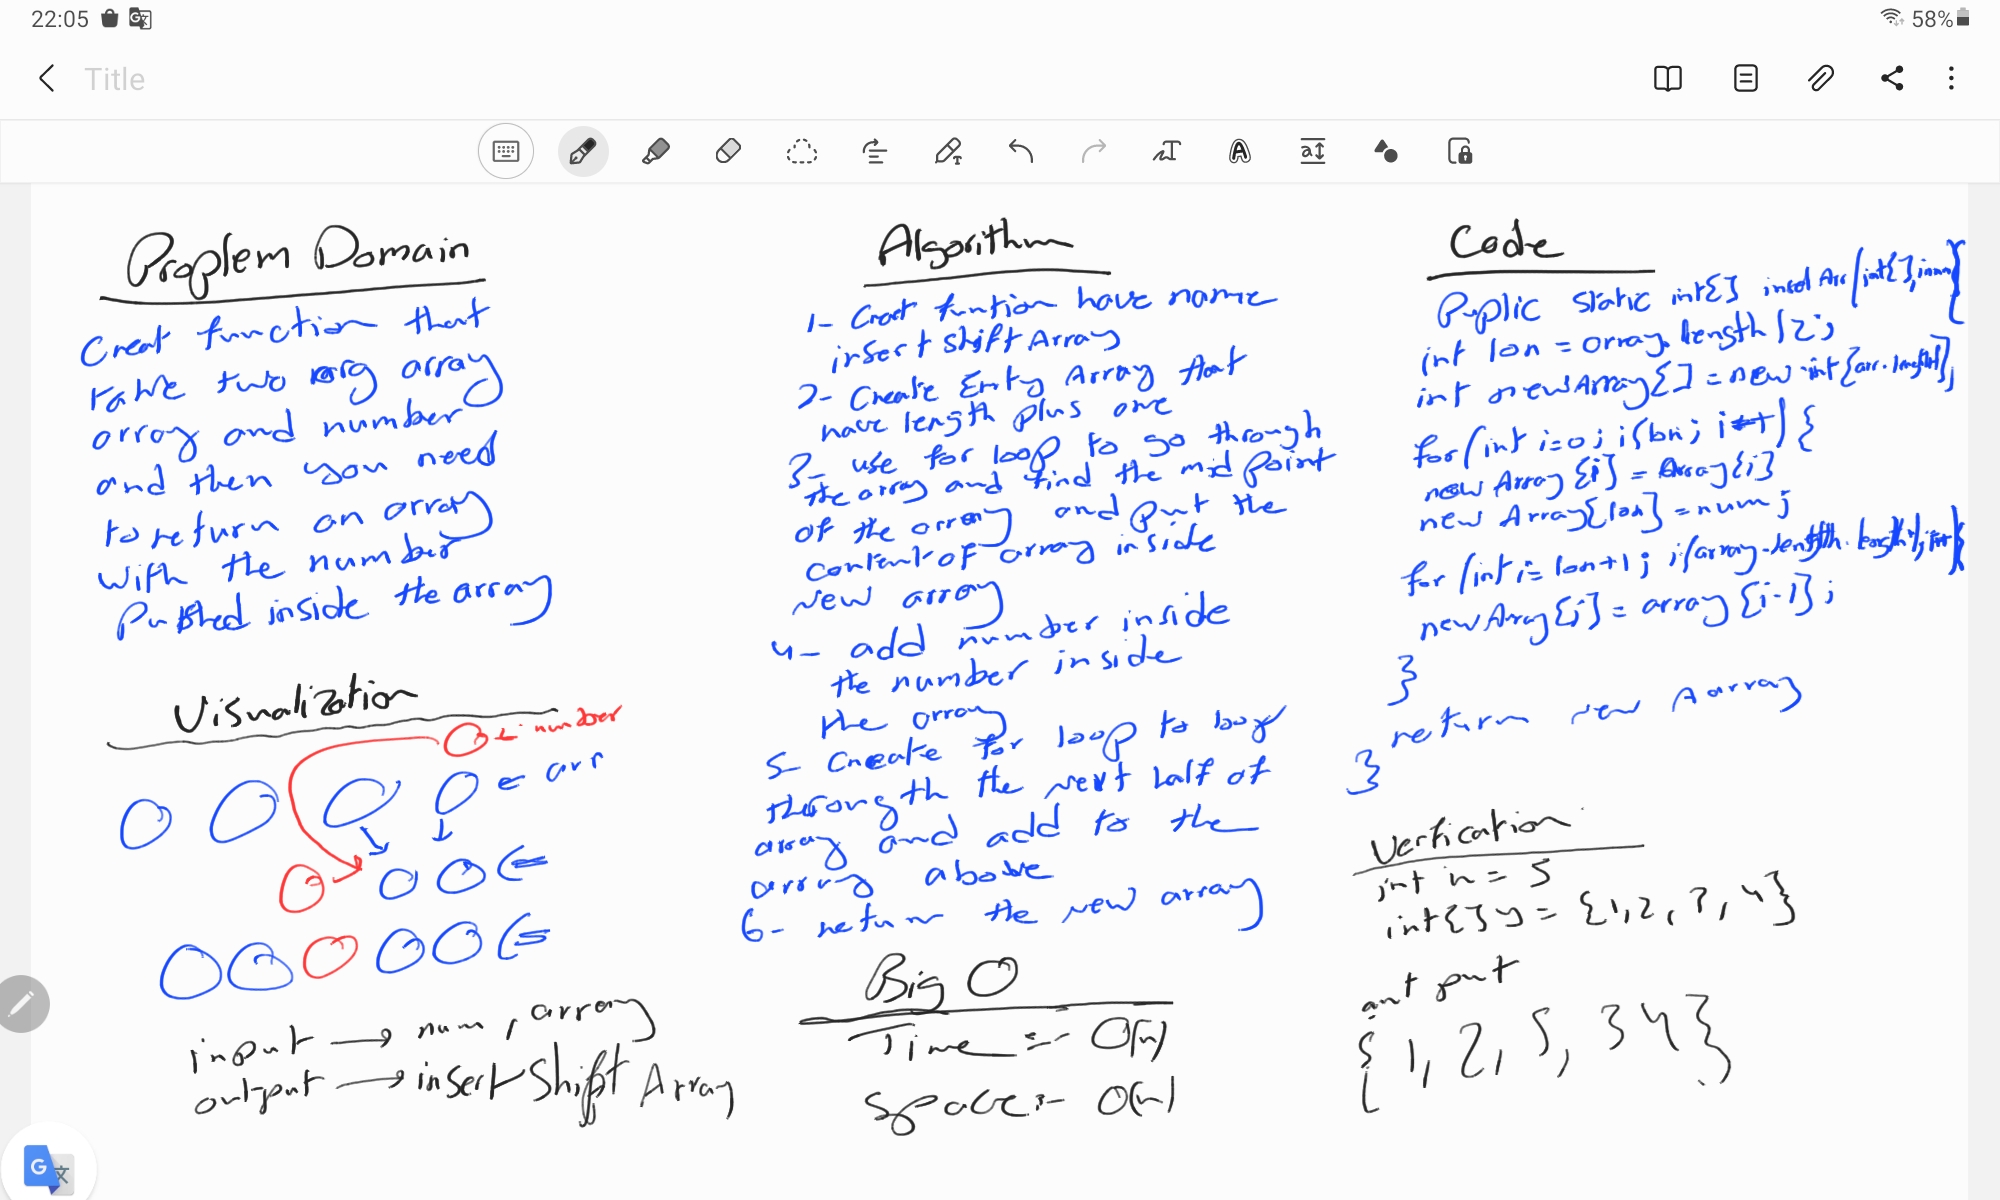 22:05
58%
Title
Proplem Domain
Creat function that
take two array
array and number
and then you need
to return an array
with the number
Pushed inside the array
Visualization
← number
← arr
input → num, array
output → insertShift Array
Algorithm
1- Creat funtion have name
insert shift Array
2- Create Emty Array that
have length plus one
3- use for loop to go through
the array and find the mid point
of the array and put the
content of array inside
New array
4- add number inside
the number inside
the array
5- Create for loop to loop
the next half of
array and add to the
array above
6- return the new array
Big O
Time :- O(n)
Space :- O(n)
Code
Puplic static int[] Arr (int[],
int lon = array.length/2;
int newArray[] = new int[arr.length];
for(int i=0; i<lon; i++) {
new Array [i] = Array[i]
new Array[lon] = num;
for (int i= lon+1; i<array.length.length;
newArray[i] = array [i-1];
}
return new Aarray
}
Verfication
int n = 5
int[] y = {1,2,3,4}
out put
{1, 2, 5, 3 4}